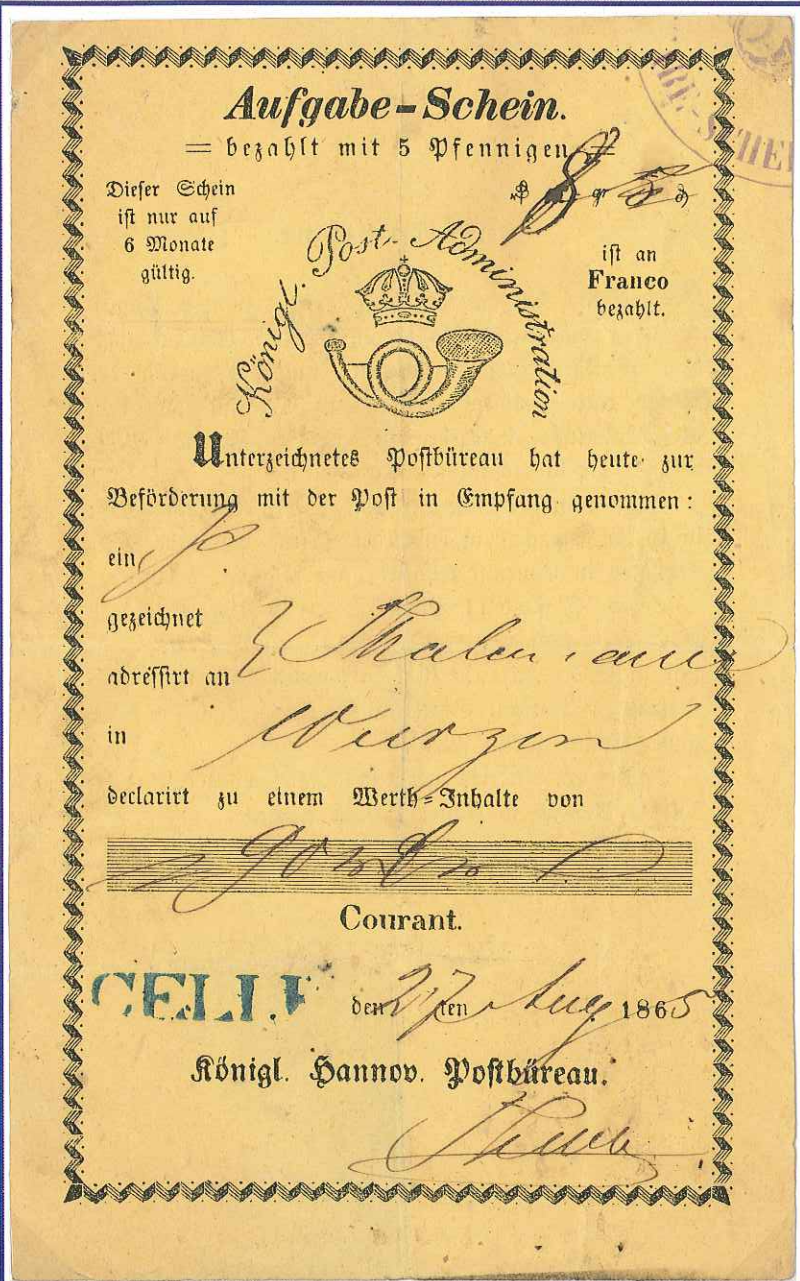 Aufgabe-Schein.
= bezahlt mit 5 Pfennigen =
Dieser Schein
ist nur auf
6 Monate
gültig.
8 gr 5 ₰
ist an
Franco
bezahlt.
Königl. Post-Administration
Unterzeichnetes Postbüreau hat heute zur
Beförderung mit der Post in Empfang genommen:
ein
gezeichnet
adressirt an
in Wurzen
declarirt zu einem Werth-Inhalte von
Courant.
CELLE den 27ten Aug 1865
Königl. Hannov. Postbüreau.